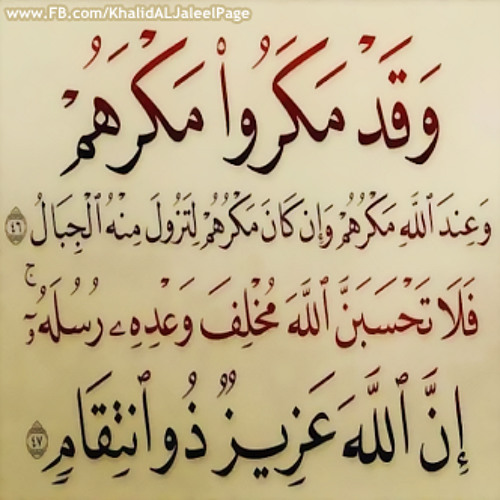 www.FB.com/KhalidALJaleelPage
وَقَدْ مَكَرُوا۟ مَكْرَهُمْ
وَعِندَ ٱللَّهِ مَكْرُهُمْ وَإِن كَانَ مَكْرُهُمْ لِتَزُولَ مِنْهُ ٱلْجِبَالُ ٤٦
فَلَا تَحْسَبَنَّ ٱللَّهَ مُخْلِفَ وَعْدِهِۦ رُسُلَهُۥٓ ۚ
إِنَّ ٱللَّهَ عَزِيزٌ ذُو ٱنتِقَامٍ ٤٧